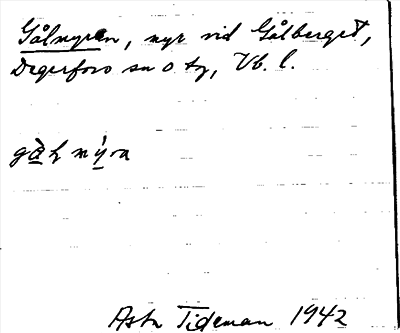 Gålmyren, myr vid Gålberget,
Degerfors sn o tg, Vb. l.
Astr Tideman 1942